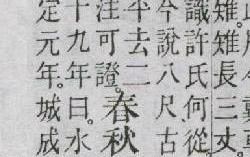 雉長三丈
識許氏何從
今說八尺古
平去二
注可證。
春秋
十九年曰。水
定元年。城成